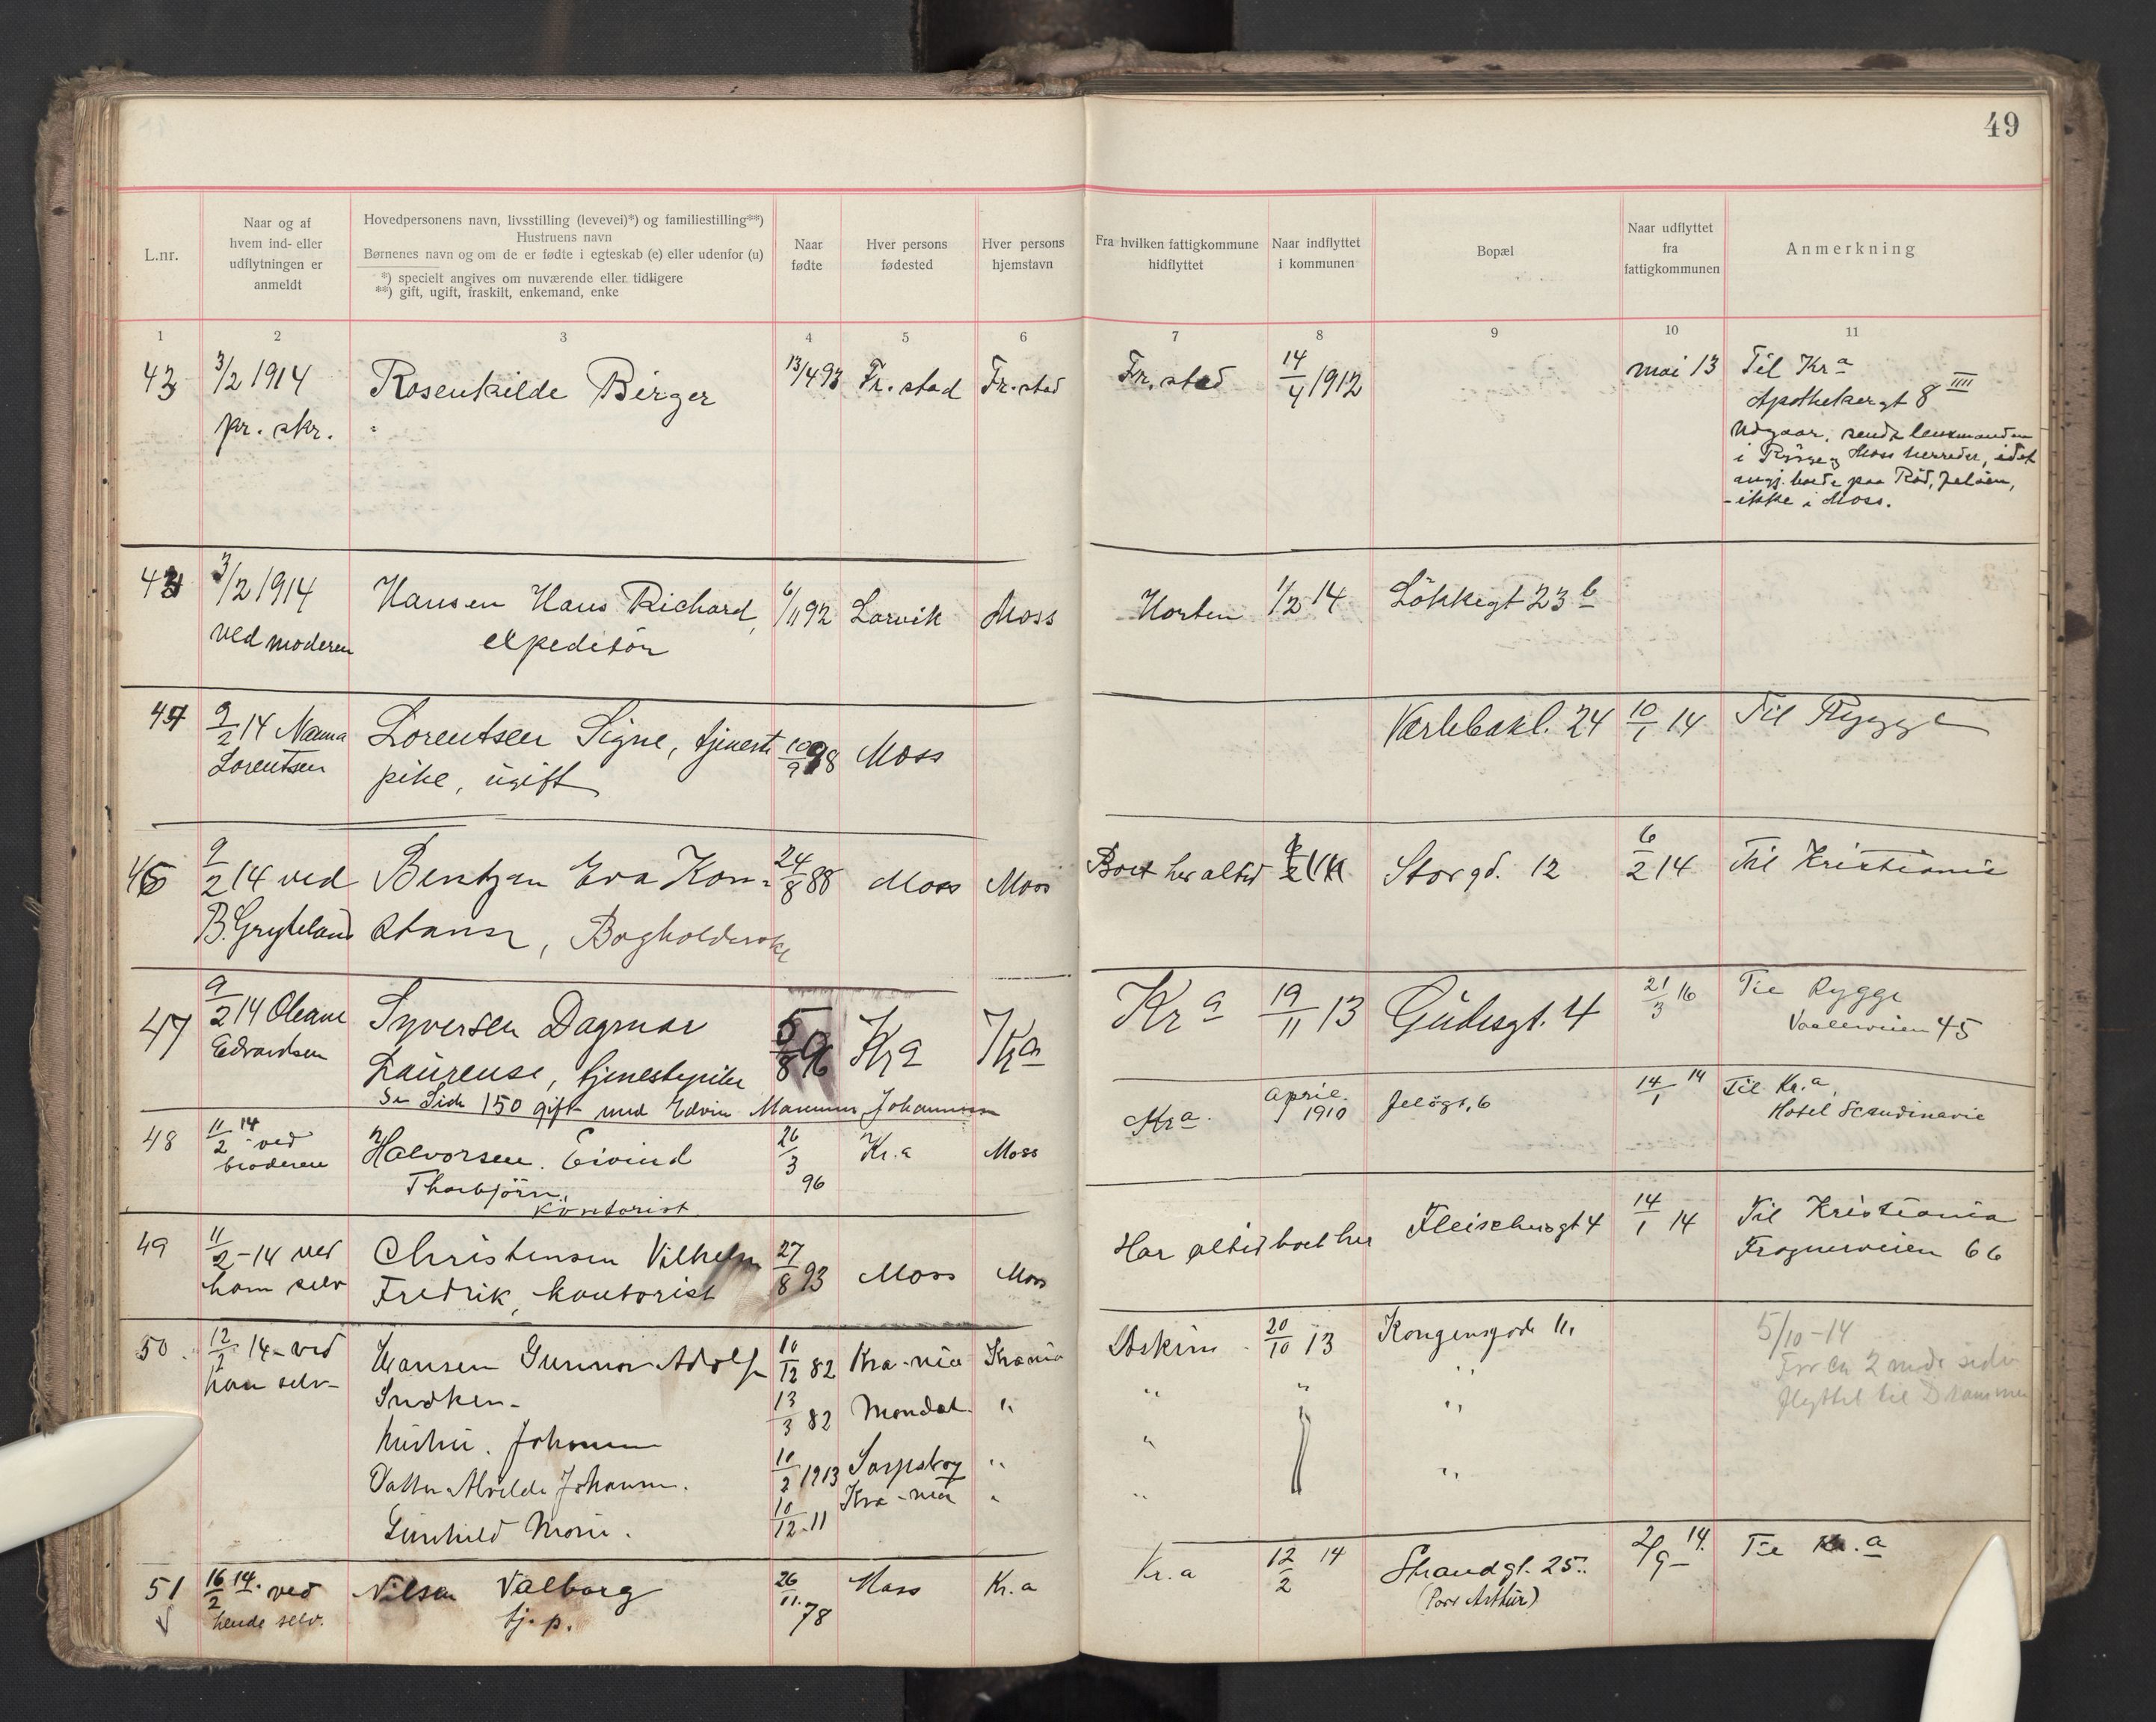 49
L.nr.
Naar og af
hvem ind- eller
udflytningen er
anmeldt
Hovedpersonens navn, livsstilling (levevei)*) og familiestilling**)
Hustruens navn
Børnenes navn og om de er fødte i egteskab (e) eller udenfor (u)
*) specielt angives om nuværende eller tidligere
**) gift, ugift, fraskilt, enkemand, enke
Naar
fødte
Hver persons
fødested
Hver persons
hjemstavn
Fra hvilken fattigkommune
hidflyttet
Naar indflyttet
i kommunen
Bopæl
Naar udflyttet
fra
fattigkommunen
Anmerkning
1 2 3 4 5 6 7 8 9 10 11
43 3/2 1914 Rosenkilde Birger 13/4 93 Fr.stad Fr.stad Fr.stad 14/4 1912 mai 13 Til Kra
pr. skr. Apothekergt 8 IIII
Udgaar, sendt lensmanden
i Rygge og Moss herreder, idet
angj. boede paa Rød, Jeløen,
- ikke i Moss.
44 3/2 1914 Hansen Hans Richard, 6/11 92 Larvik Moss Horten 1/2 14 Løkkegt 23 b
ved moderen expeditør
45 9/2 14 Nanna Lorentsen Signe, tjeneste 10/9 98 Moss Varlebakl. 24 10/1 14 Til Rygge
Lorentsen pike, ugift
46 9/2 14 ved Bentzen Eva Kon- 24/8 88 Moss Moss Boet her altid Storgd. 12 6/2 14 Til Kristiania
B. Gryteland stanse, Bogholderske
47 9/2 14 Oleane Syversen Dagmar 5/8 96 Kra Kra Kra 19/11 13 Gudesgt. 4 21/3 16 Til Rygge
Edvardsen Laurense, tjenestepike Vaaleveien 45
Se Side 150 gift med Edvin Johannesen
48 11/2 14 ved Halvorsen. Eivind 26/3 96 Kr.a Moss Kra. april 1910 Jeløgt. 6 14/1 14 Til Kr.a,
broderen Thorbjørn, Hotel Scandinavie
Kontorist
49 11/2 - 14 ved Christensen Vilhelm 27/8 93 Moss Moss Har altid boet her Fleischersgt 4 14/1 14 Til Kristiania
ham selv Fredrik, kontorist Frognerveien 66
50. 12/2 14 - ved Hansen Gunnar Adolf 10/12 82 Kra-nia Krania Askim 20/10 13 Kongensgade 11. 5/10-14
ham selv - Snedker - 13/3 82 Mandal " " " " For ca 2 mdr siden
Hustru. Johanne 10/2 1913 Sarpsborg " " " flyttet til Drammen
Datter Alvilde Johanne. 10/12 - 11 Kra-nia " " "
Gunhild Marie.
51 16/2 14. ved Nilsen Valborg 26/11. 78 Moss Kr.a Kr.a 12/2 14 Strandgt. 25. 2/9 - 14. Til Kr.a
hende selv. tj. p. (Port Arthur)